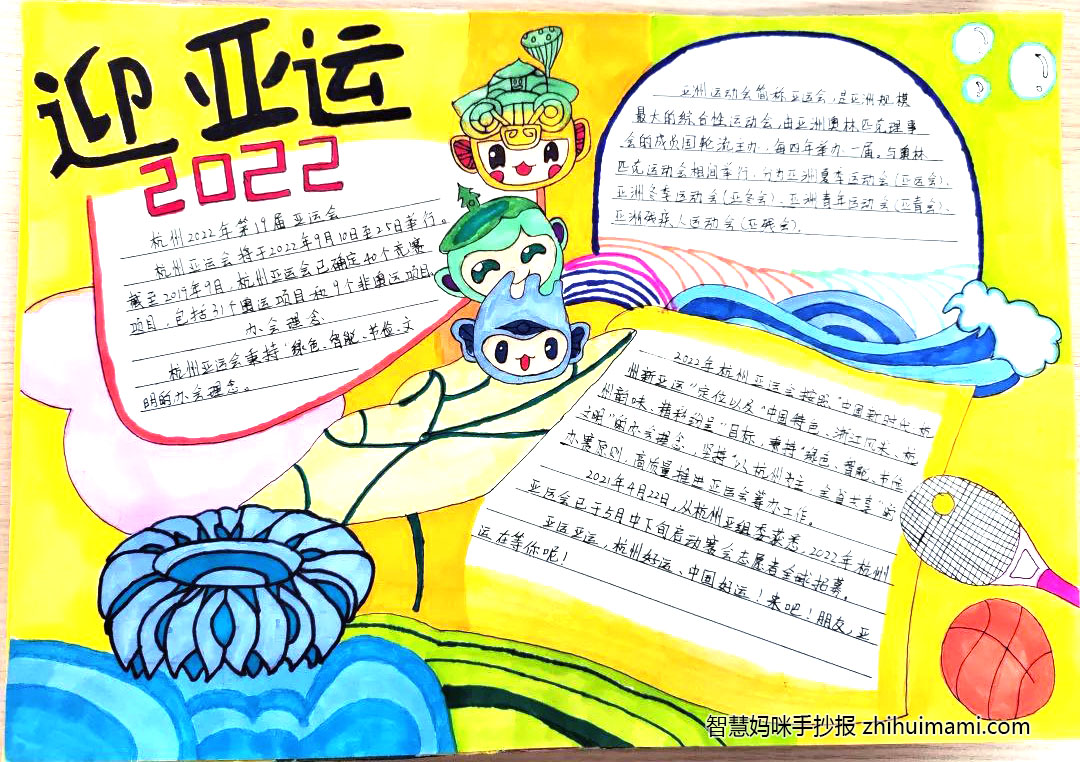 迎亚运
2022
杭州2022年第19届亚运会
杭州亚运会将于2022年9月10日至25日举行。
截至2019年9月,杭州亚运会已确定40个竞赛
项目,包括31个奥运项目和9个非奥运项目。
办会理念
杭州亚运会秉持“绿色、智能、节俭、文
明的办会理念。
亚洲运动会简称亚运会,是亚洲规模
最大的综合性运动会,由亚洲奥林匹克理事
会的成员国轮流主办,每四年举办一届。与奥林
匹克运动会相间举行,分为亚洲夏季运动会(亚运会)、
亚洲冬季运动会(亚冬会)、亚洲青年运动会(亚青会)、
亚洲残疾人运动会(亚残会)。
2022年杭州亚运会按照“中国新时代·杭
州新亚运”定位以及“中国特色、浙江风采、杭
州韵味、精彩纷呈”目标,秉持“绿色、智能、节俭
文明”的办会理念,坚持“以杭州为主、全省共享”的
办赛原则,高质量推进亚运会筹办工作。
2021年4月22日,从杭州亚组委获悉,2022年杭州
亚运会已于5月中下旬启动赛会志愿者全球招募。
亚运亚运,杭州好运、中国好运!来吧!朋友,亚
运在等你呢!
智慧妈咪手抄报 zhihuimami.com